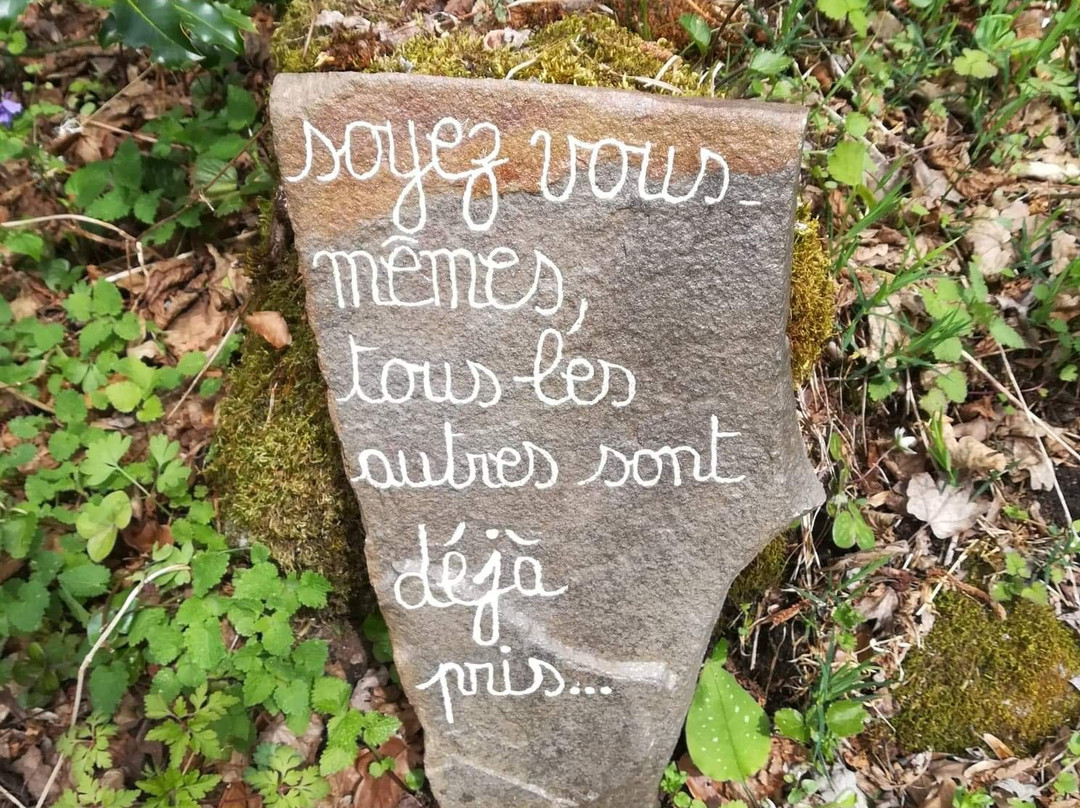 soyez vous-
mêmes,
tous lés
autres sont
déjà
pris...